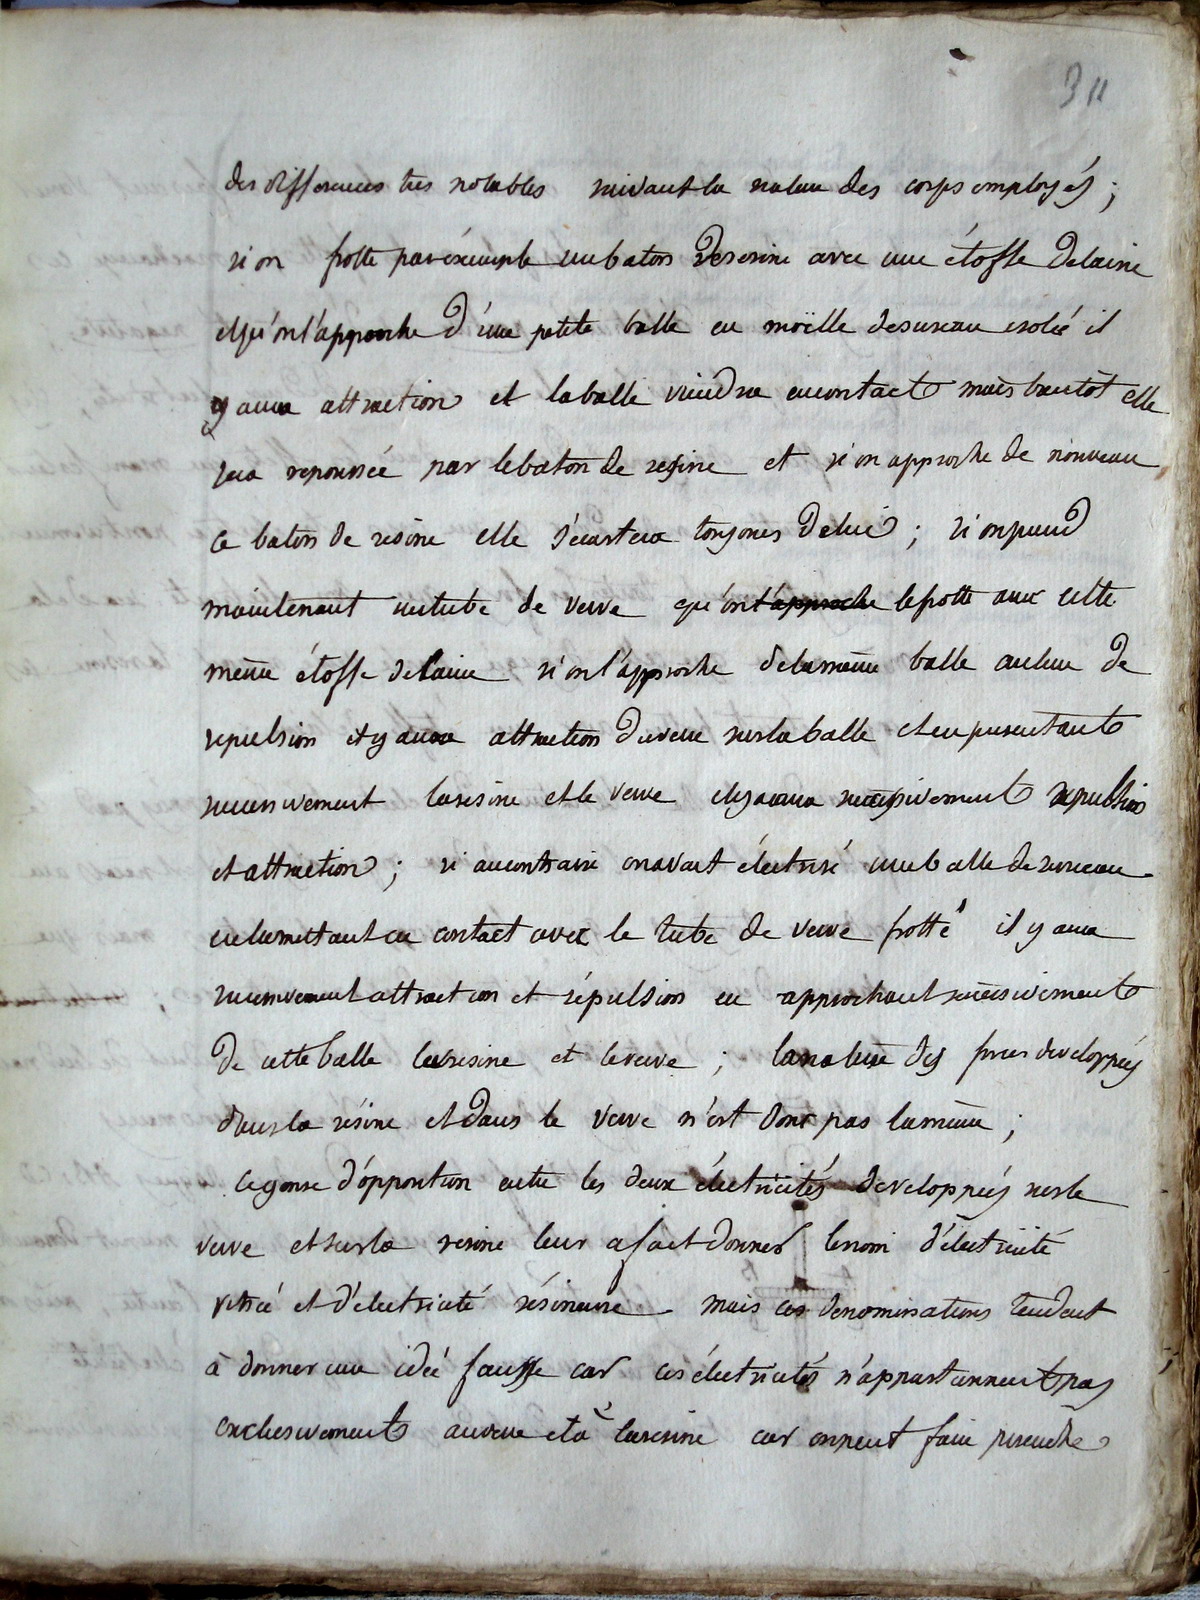 311
des differences tres notables suivant la nature des corps employés ;
si on frotte par éxemple un baton de resine avec une étoffe de laine
et qu'on l'approche d'une petite balle en moëlle de sureau isolée il
y aura attraction et la balle viendra en contact mais bientôt elle
sera repoussée par le baton de resine et si on approche de nouveau
ce baton de résine elle s'écartera toujours de lui ; si on prend
maintenant un tube de verre qu'on l'approche le frotte avec cette
même étoffe de laine si on l'approche de la même balle au lieu de
repulsion il y aura attraction du verre sur la balle et en presentant
successivement la resine et le verre il y aura successivement repulsion
et attraction ; si au contraire on avait électrisé une balle de sureau
en la mettant en contact avec le tube de verre frotté il y aura
successivement attraction et répulsion en approchant successivement
de cette balle la resine et le verre ; la nature des forces developpées
dans la résine et dans le verre n'est donc pas la même ;
Ce genre d'opposition entre les deux électricités developpées sur le
verre et sur la resine leur a fait donner le nom d'électricité
vitrée et d'électricité résineuse mais ces denominations tendent
à donner une idée fausse car ces électricités n'appartiennent pas
exclusivement au verre et à la resine car on peut faire prendre